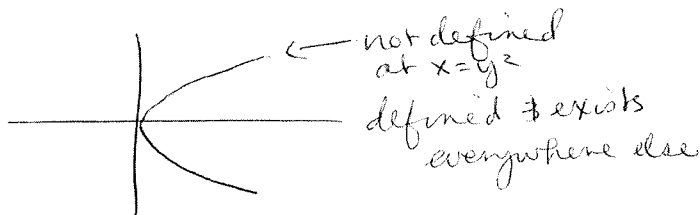 not defined
at x=y²
defined & exists
everywhere else